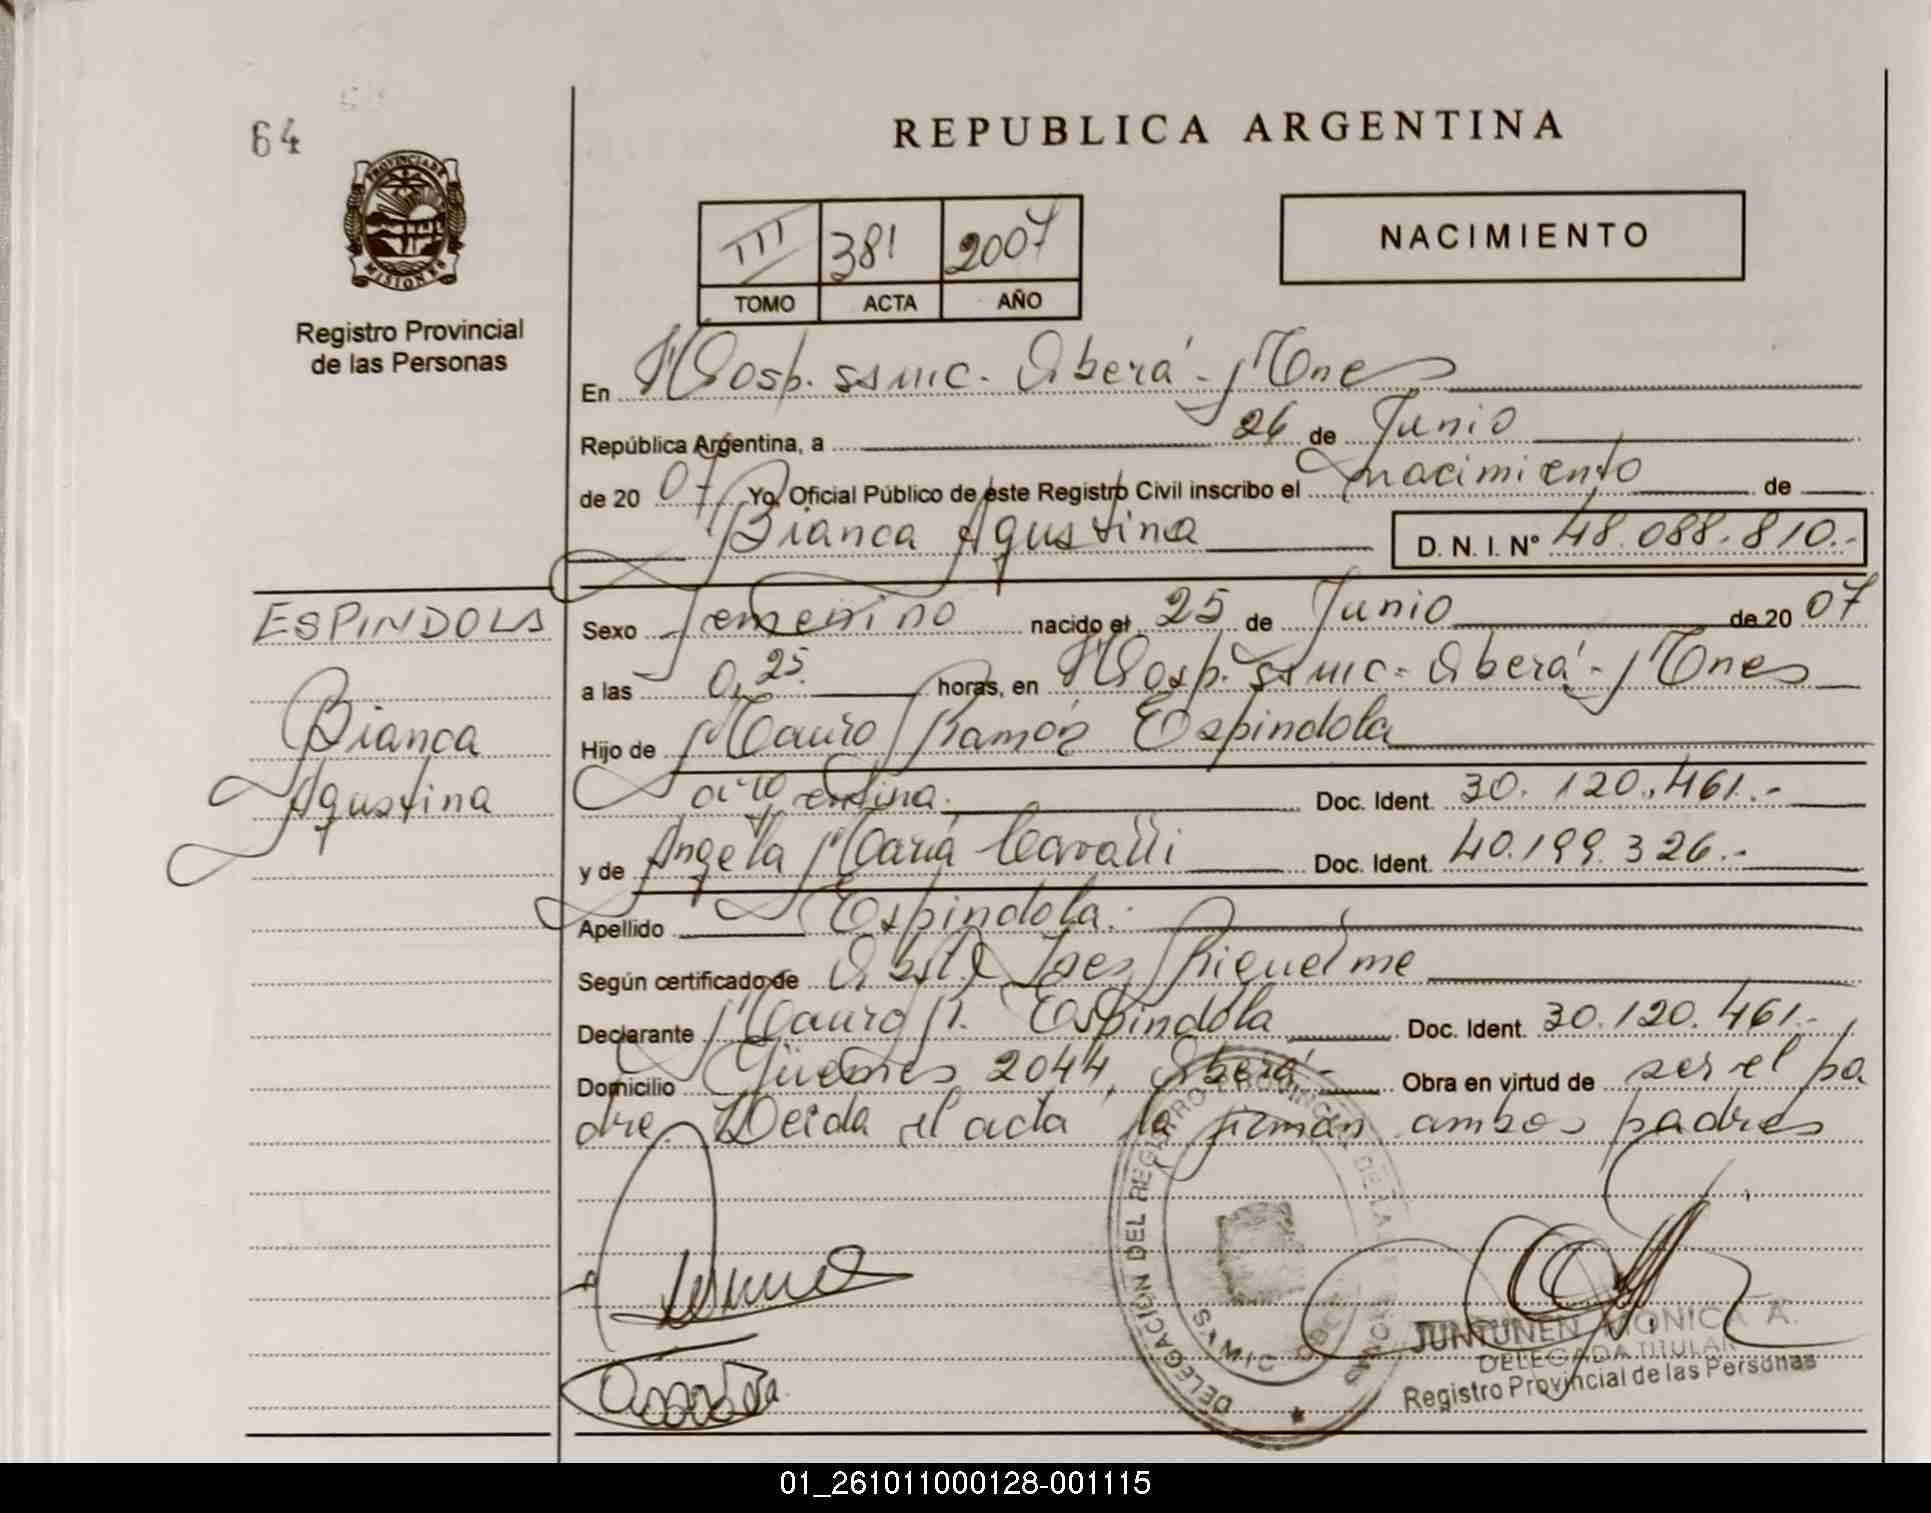 64
REPUBLICA ARGENTINA
PROVINCIA DE
MISIONES
Registro Provincial
de las Personas
III 381 2007
TOMO ACTA AÑO
NACIMIENTO
En Hosp. SSMIC. Oberá - Mnes
República Argentina, a 26 de Junio
de 20 07 Yo, Oficial Público de este Registro Civil inscribo el nacimiento de
Bianca Agustina D. N. I. Nº 48.088.810.-
ESPINDOLA
Bianca
Agustina
Sexo femenino nacido el 25 de Junio de 20 07
a las 0,25. horas, en Hosp. SSMIC - Oberá - Mnes
Hijo de Mauro Ramón Espindola
argentina. Doc. Ident. 30.120.461.-
y de Angela María Doc. Ident. 40.199.326.-
Apellido Espindola.
Según certificado de Obst. Ines Riquelme
Declarante Mauro R. Espindola Doc. Ident. 30.120.461.-
Domicilio Güemes 2044, Oberá - Obra en virtud de ser el pa
dre. Leida el acta la firman ambos padres
DELEGACION DEL REGISTRO PROVINCIAL DE LAS
JUNTUNEN MONICA A.
DELEGADA TITULAR
Registro Provincial de las Personas
01_261011000128-001115